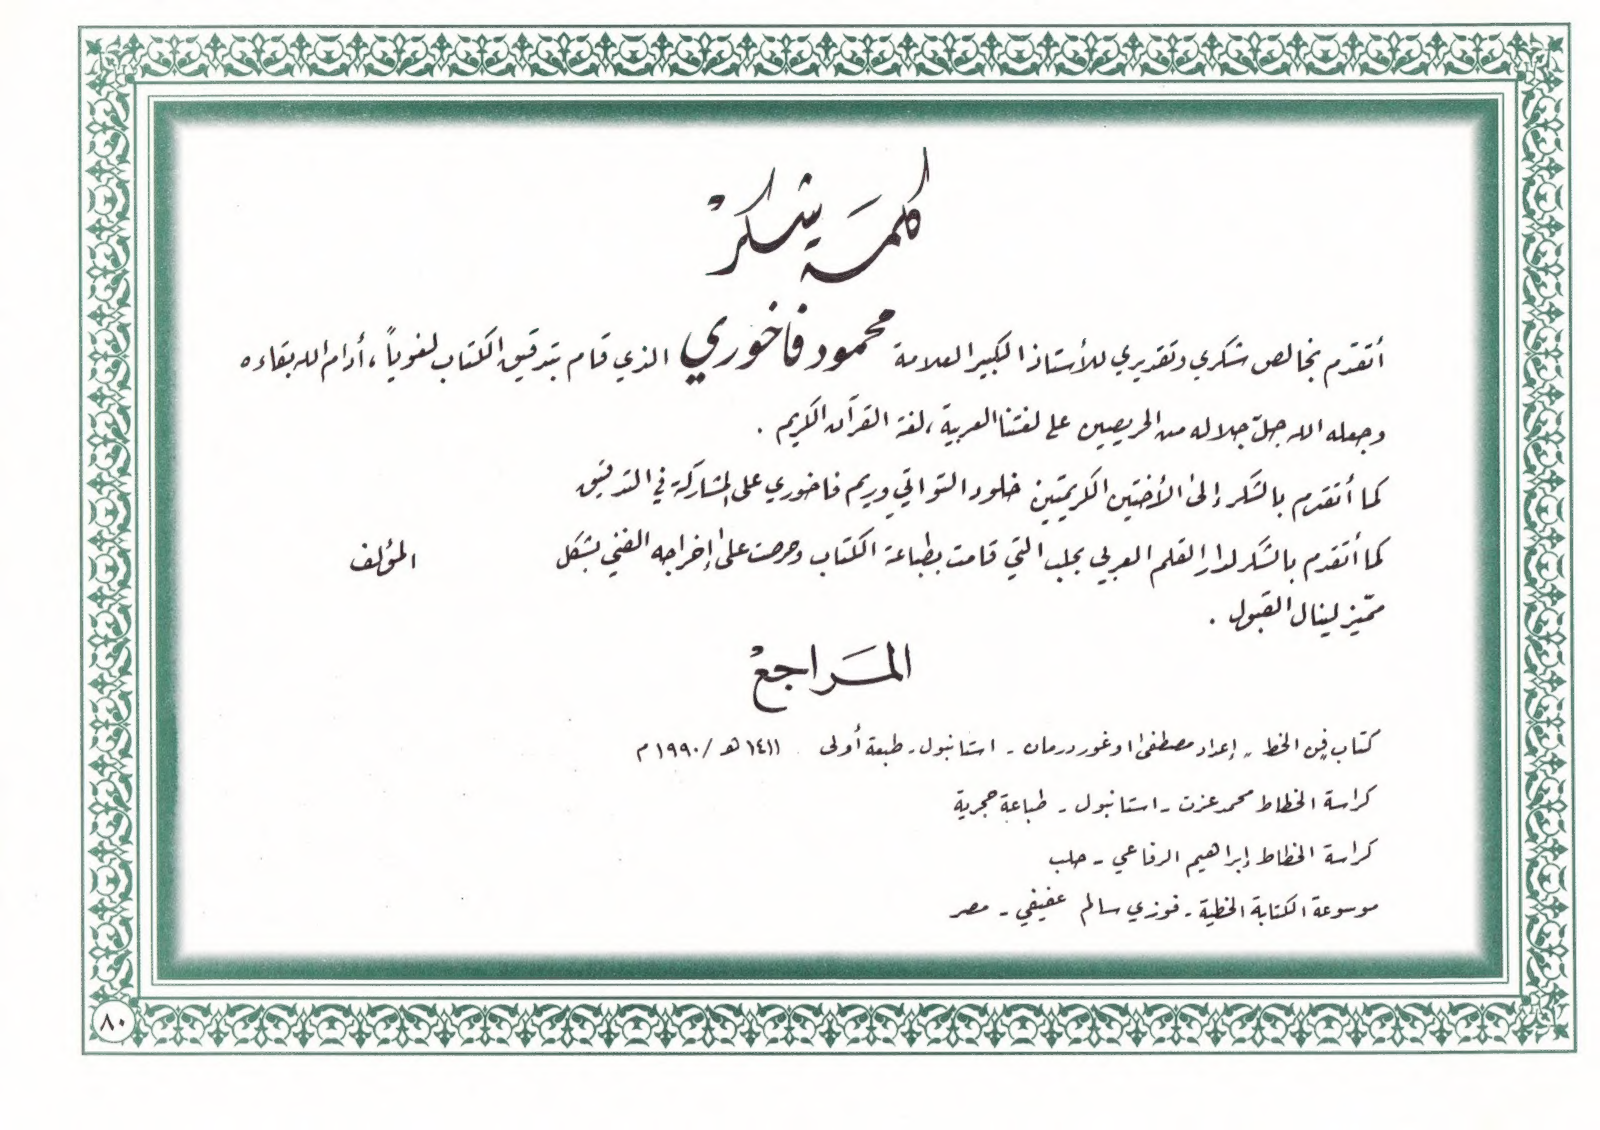 كلمة شكر
أتقدم بخالص شكري وتقديري للأستاذ الكبير العلامة محمود فاخوري الذي قام بتدقيق الكتاب لغوياً ، أدام الله بقاءه
وجعله الله جلّ جلاله من الحريصين على لغتنا العربية ، لغة القرآن الكريم .
كما أتقدم بالشكر إلى الأختين الكريمتين خلود التواتي وريم فاخوري على المشاركة في التدقيق
كما أتقدم بالشكر لدار القلم العربي بحلب التي قامت بطباعة الكتاب وحرصت على إخراجه الفني بشكل
مميّز لينال القبول .
المؤلف
المَراجعْ
كتاب فن الخط - إعداد مصطفى اوغور درمان - استانبول - طبعة أولى ١٤١١ هـ / ١٩٩٠ م
كراسة الخطاط محمد عزت - استانبول - طباعة حجرية
كراسة الخطاط إبراهيم الرفاعي - حلب
موسوعة الكتابة الخطية - فوزي سالم عفيفي - مصر
٨٠